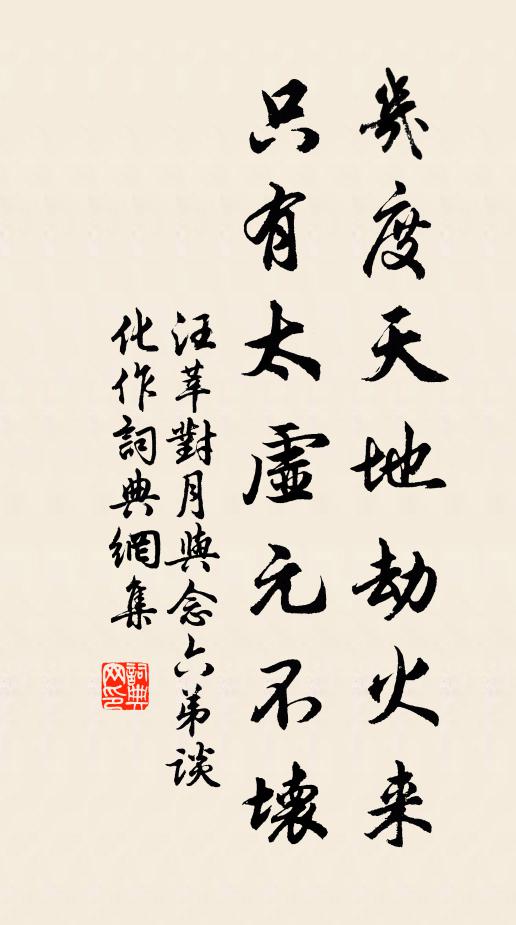 幾度天地劫火来
只有太虛元不壞
汪莘對月與念六弟談
化作詞典網集
詞典
网印